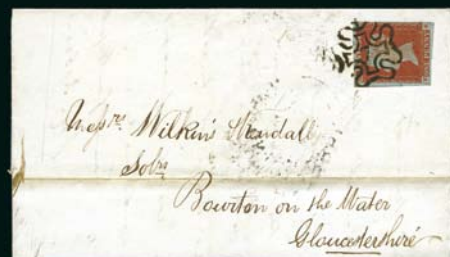 Messrs Wilkins & Kendall
Solrs
Bourton on the Water
Gloucestershire